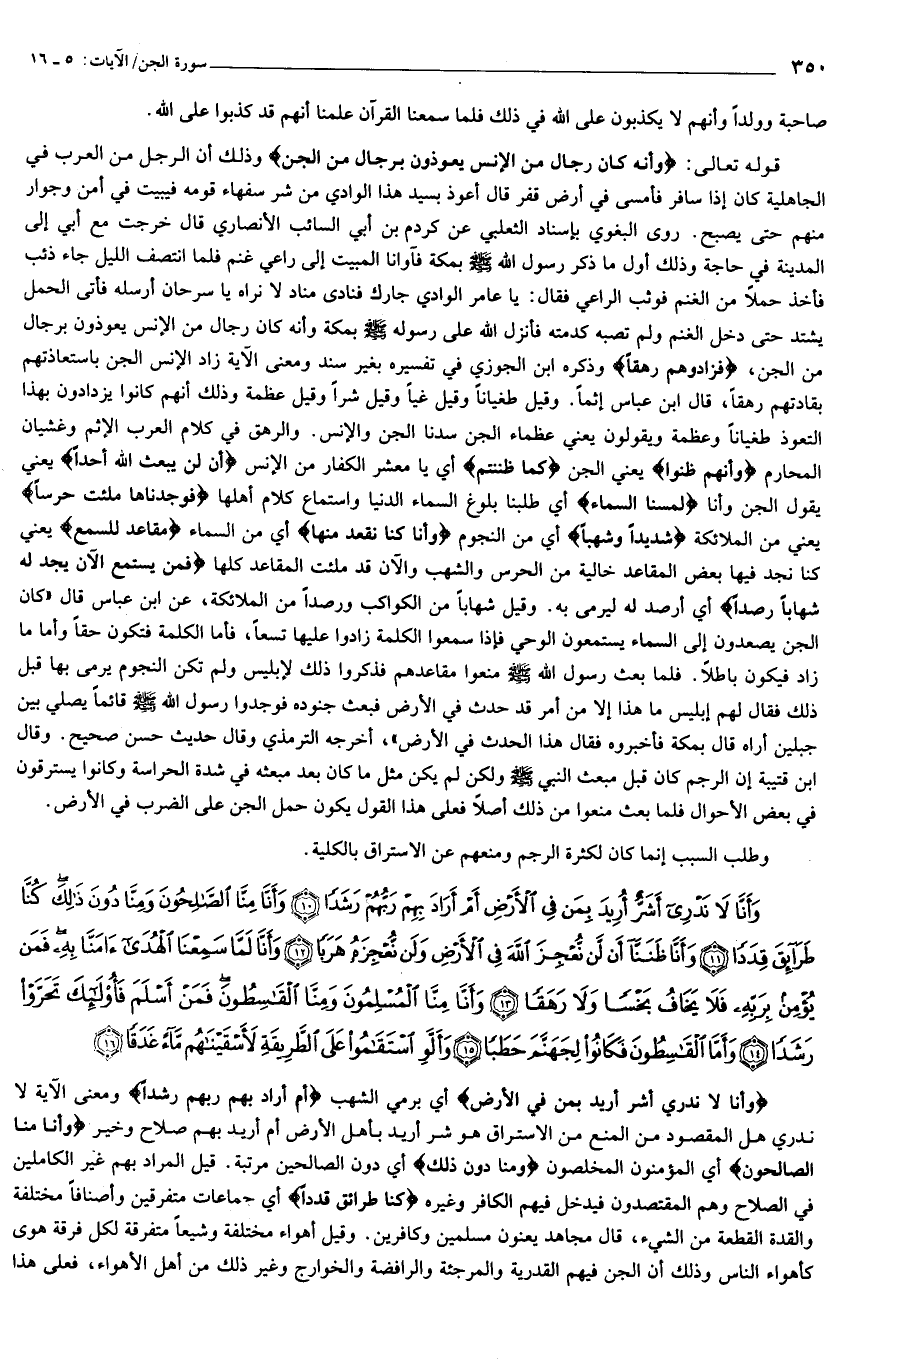 ٣٥٠ سورة الجن/ الآيات: ٥ ـ ١٦
صاحبة وولداً وأنهم لا يكذبون على الله في ذلك فلما سمعنا القرآن علمنا أنهم قد كذبوا على الله.
قوله تعالى: ﴿وأنه كان رجال من الإنس يعوذون برجال من الجن﴾ وذلك أن الرجل من العرب في
الجاهلية كان إذا سافر فأمسى في أرض قفر قال أعوذ بسيد هذا الوادي من شر سفهاء قومه فيبيت في أمن وجوار
منهم حتى يصبح. روى البغوي بإسناد الثعلبي عن كردم بن أبي السائب الأنصاري قال خرجت مع أبي إلى
المدينة في حاجة وذلك أول ما ذكر رسول الله ﷺ بمكة فآوانا المبيت إلى راعي غنم فلما انتصف الليل جاء ذئب
فأخذ حملاً من الغنم فوثب الراعي فقال: يا عامر الوادي جارك فنادى مناد لا نراه يا سرحان أرسله فأتى الحمل
يشتد حتى دخل الغنم ولم تصبه كدمته فأنزل الله على رسوله ﷺ بمكة وأنه كان رجال من الإنس يعوذون برجال
من الجن، ﴿فزادوهم رهقاً﴾ وذكره ابن الجوزي في تفسيره بغير سند ومعنى الآية زاد الإنس الجن باستعاذتهم
بقادتهم رهقاً، قال ابن عباس إثماً. وقيل طغياناً وقيل غياً وقيل شراً وقيل عظمة وذلك أنهم كانوا يزدادون بهذا
التعوذ طغياناً وعظمة ويقولون يعني عظماء الجن سدنا الجن والإنس. والرهق في كلام العرب الإثم وغشيان
المحارم ﴿وأنهم ظنوا﴾ يعني الجن ﴿كما ظننتم﴾ أي يا معشر الكفار من الإنس ﴿أن لن يبعث الله أحداً﴾ يعني
يقول الجن وأنا ﴿لمسنا السماء﴾ أي طلبنا بلوغ السماء الدنيا واستماع كلام أهلها ﴿فوجدناها ملئت حرساً﴾
يعني من الملائكة ﴿شديداً وشهباً﴾ أي من النجوم ﴿وأنا كنا نقعد منها﴾ أي من السماء ﴿مقاعد للسمع﴾ يعني
كنا نجد فيها بعض المقاعد خالية من الحرس والشهب والآن قد ملئت المقاعد كلها ﴿فمن يستمع الآن يجد له
شهاباً رصداً﴾ أي أرصد له ليرمى به. وقيل شهاباً من الكواكب ورصداً من الملائكة، عن ابن عباس قال «كان
الجن يصعدون إلى السماء يستمعون الوحي فإذا سمعوا الكلمة زادوا عليها تسعاً، فأما الكلمة فتكون حقاً وأما ما
زاد فيكون باطلاً. فلما بعث رسول الله ﷺ منعوا مقاعدهم فذكروا ذلك لإبليس ولم تكن النجوم يرمى بها قبل
ذلك فقال لهم إبليس ما هذا إلا من أمر قد حدث في الأرض فبعث جنوده فوجدوا رسول الله ﷺ قائماً يصلي بين
جبلين أراه قال بمكة فأخبروه فقال هذا الحدث في الأرض»، أخرجه الترمذي وقال حديث حسن صحيح. وقال
ابن قتيبة إن الرجم كان قبل مبعث النبي ﷺ ولكن لم يكن مثل ما كان بعد مبعثه في شدة الحراسة وكانوا يسترقون
في بعض الأحوال فلما بعث منعوا من ذلك أصلاً فعلى هذا القول يكون حمل الجن على الضرب في الأرض.
وطلب السبب إنما كان لكثرة الرجم ومنعهم عن الاستراق بالكلية.
وَأَنَّا لَا نَدْرِىٓ أَشَرٌّ أُرِيدَ بِمَن فِى ٱلْأَرْضِ أَمْ أَرَادَ بِهِمْ رَبُّهُمْ رَشَدًا ﴿١٠﴾ وَأَنَّا مِنَّا ٱلصَّـٰلِحُونَ وَمِنَّا دُونَ ذَٰلِكَ ۖ كُنَّا
طَرَآئِقَ قِدَدًا ﴿١١﴾ وَأَنَّا ظَنَنَّآ أَن لَّن نُّعْجِزَ ٱللَّهَ فِى ٱلْأَرْضِ وَلَن نُّعْجِزَهُۥ هَرَبًا ﴿١٢﴾ وَأَنَّا لَمَّا سَمِعْنَا ٱلْهُدَىٰٓ ءَامَنَّا بِهِۦ ۖ فَمَن
يُؤْمِنۢ بِرَبِّهِۦ فَلَا يَخَافُ بَخْسًا وَلَا رَهَقًا ﴿١٣﴾ وَأَنَّا مِنَّا ٱلْمُسْلِمُونَ وَمِنَّا ٱلْقَـٰسِطُونَ ۖ فَمَنْ أَسْلَمَ فَأُو۟لَـٰٓئِكَ تَحَرَّوْا۟
رَشَدًا ﴿١٤﴾ وَأَمَّا ٱلْقَـٰسِطُونَ فَكَانُوا۟ لِجَهَنَّمَ حَطَبًا ﴿١٥﴾ وَأَلَّوِ ٱسْتَقَـٰمُوا۟ عَلَى ٱلطَّرِيقَةِ لَأَسْقَيْنَـٰهُم مَّآءً غَدَقًا ﴿١٦﴾
﴿وأنا لا ندري أشر أريد بمن في الأرض﴾ أي برمي الشهب ﴿أم أراد بهم ربهم رشداً﴾ ومعنى الآية لا
ندري هل المقصود من المنع من الاستراق هو شر أريد بأهل الأرض أم أريد بهم صلاح وخير ﴿وأنا منا
الصالحون﴾ أي المؤمنون المخلصون ﴿ومنا دون ذلك﴾ أي دون الصالحين مرتبة. قيل المراد بهم غير الكاملين
في الصلاح وهم المقتصدون فيدخل فيهم الكافر وغيره ﴿كنا طرائق قدداً﴾ أي جماعات متفرقين وأصنافاً مختلفة
والقدة القطعة من الشيء، قال مجاهد يعنون مسلمين وكافرين. وقيل أهواء مختلفة وشيعاً متفرقة لكل فرقة هوى
كأهواء الناس وذلك أن الجن فيهم القدرية والمرجئة والرافضة والخوارج وغير ذلك من أهل الأهواء، فعلى هذا